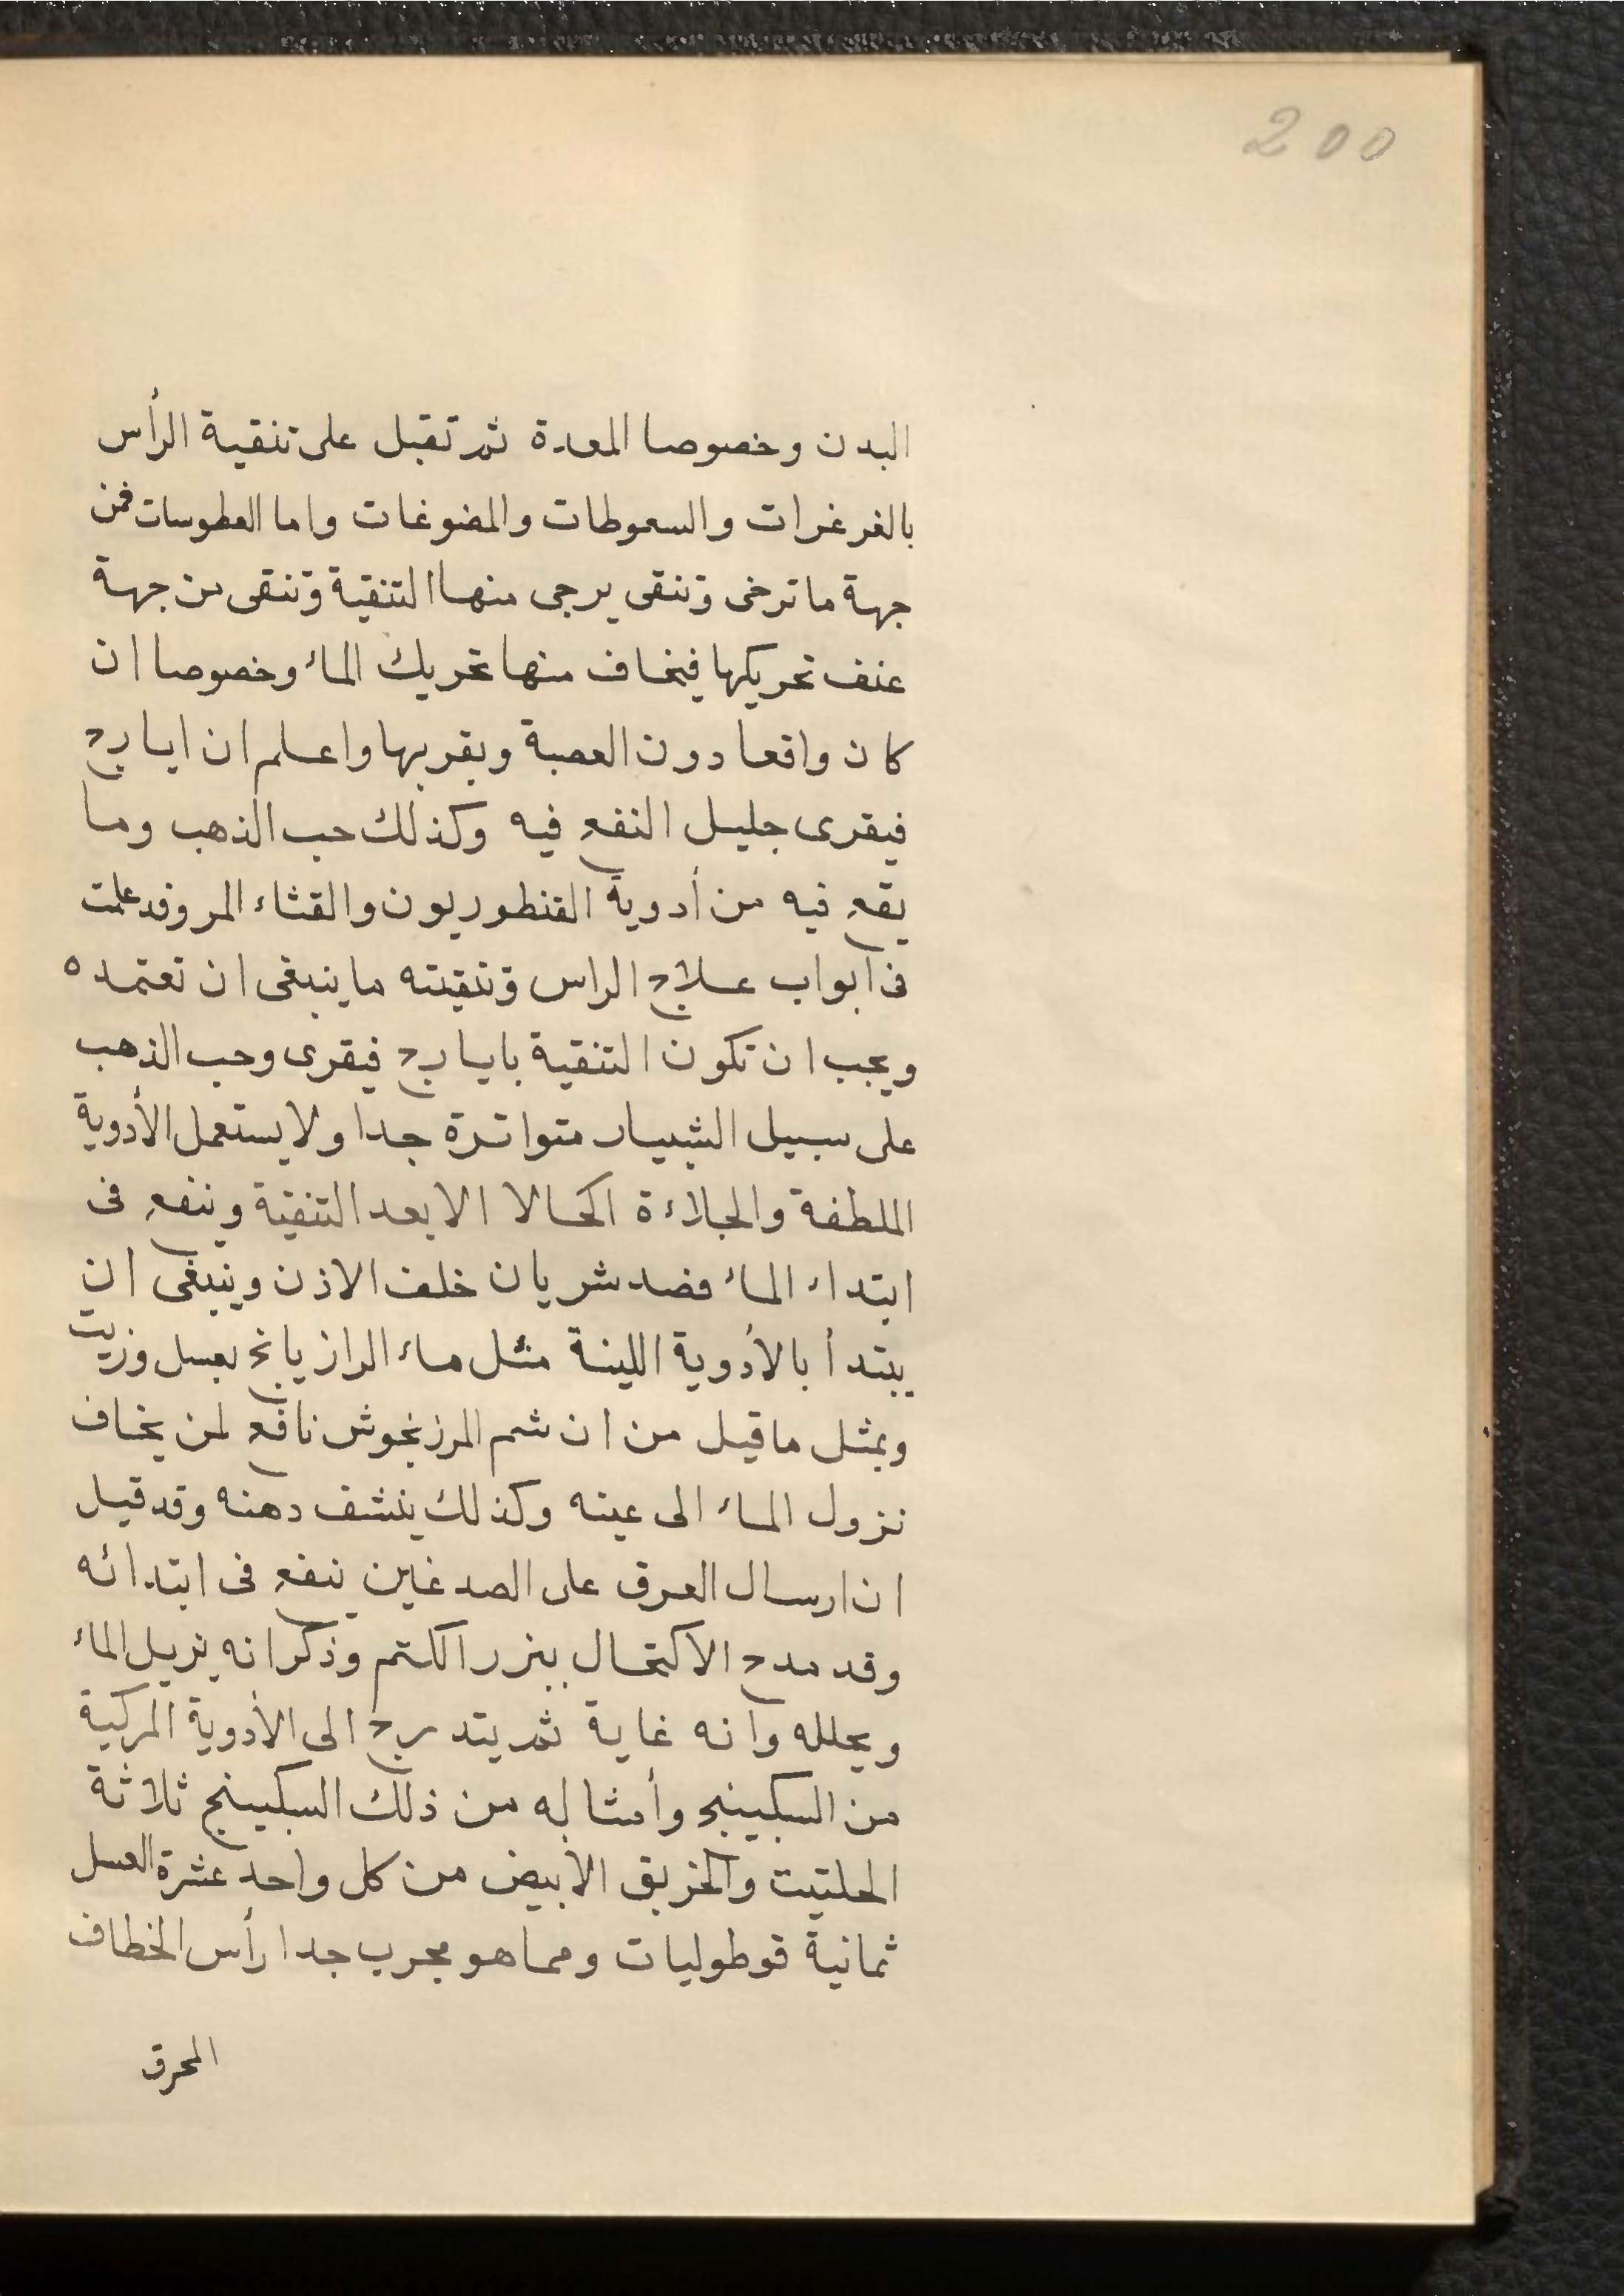 200
البدن وخصوصا المعدة ثم تقبل على تنقية الرأس
بالغرغرات والسعوطات والمضوغات واما العطوسات فمن
جهة ما ترخى وتنقى يرجى منها التنقية وتنقى من جهة
عنف تحريكها فيخاف منها تحريك الماء وخصوصا ان
كان واقعا دون العصبة وبقربها واعلم ان ايارج
فيقرى جليل النفع فيه وكذلك حب الذهب وما
يقع فيه من أدوية القنطوريون والقثاء المر وقد علمت
فى ابواب علاج الراس وتنقيته ما ينبغى ان تعتمده
ويجب ان تكون التنقية بايارج فيقرى وحب الذهب
على سبيل الشبيار متواترة جدا ولا يستعمل الأدوية
الملطفة والجلاءة اكحالا الا بعد التنقية وينفع فى
ابتداء الماء فصد شريان خلف الاذن وينبغى ان
يبتدأ بالأدوية اللينة مثل ماء الرازيانج بعسل وزيت
وبمثل ما قيل من ان شم المرزنجوش نافع لمن يخاف
نزول الماء الى عينه وكذلك ينشف دهنه وقد قيل
ان ارسال العرق على الصدغين ينفع فى ابتدائه
وقد مدح الاكتحال ببزر الكتم وذكر انه يزيل الماء
ويحلله وانه غاية ثم يتدرج الى الأدوية المركبة
من السكبينج وأمثاله من ذلك السكبينج ثلاثة
الحلتيت والخربق الابيض من كل واحد عشرة العسل
ثمانية قوطوليات ومما هو مجرب جدا رأس الخطاف
المحرق